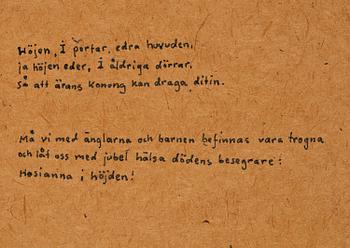 Höjen, I portar, edra huvuden,
ja höjen eder, I åldriga dörrar,
så att ärans konung kan draga ditin.
Må vi med änglarna och barnen befinnas vara trogna
och låt oss med jubel hälsa dödens besegrare:
Hosianna i höjden!